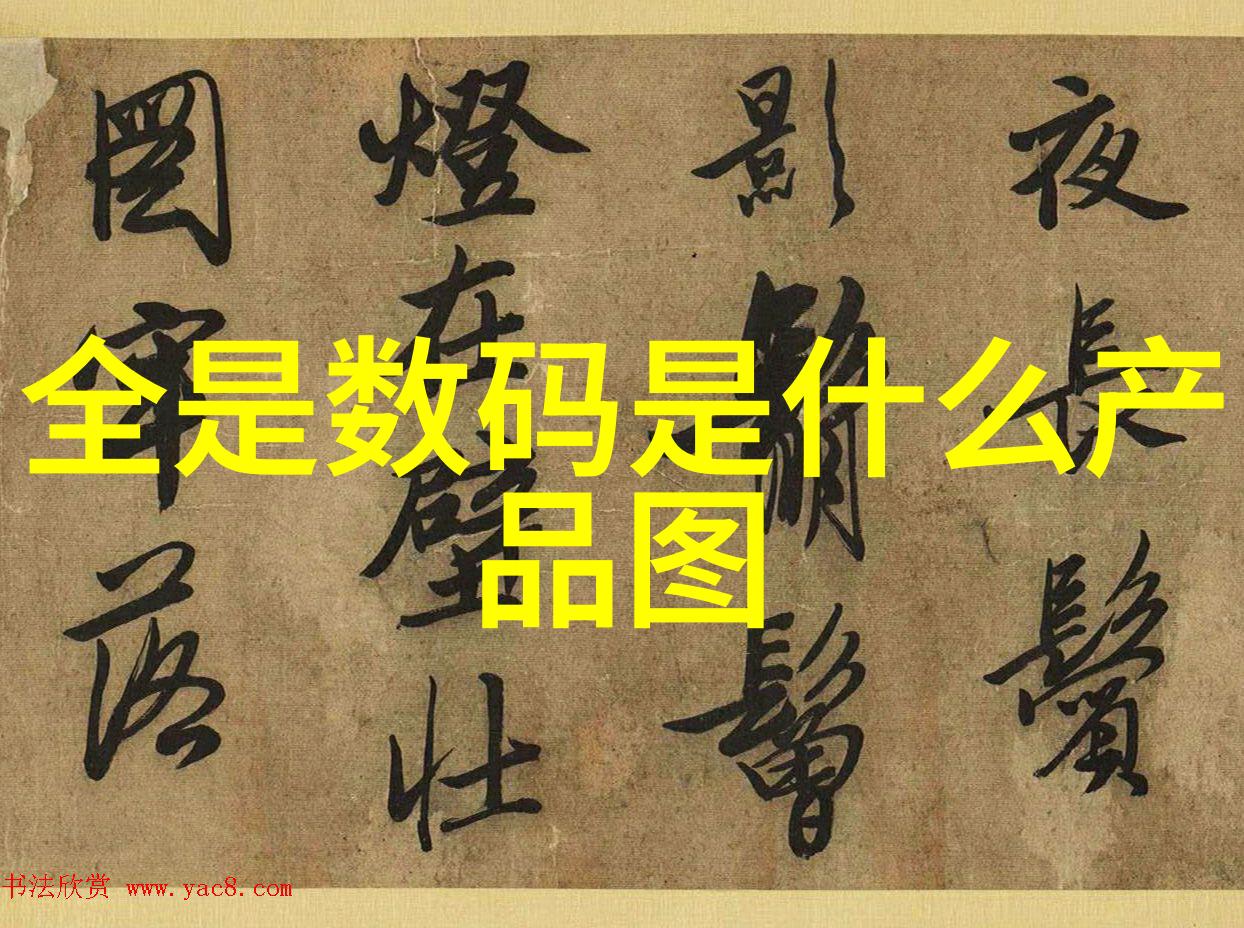 夜長鬢
影鬅鬙
燈在壁壯
圖牢落
全是数码是什么产
品图
书法欣赏 www.yac8.com